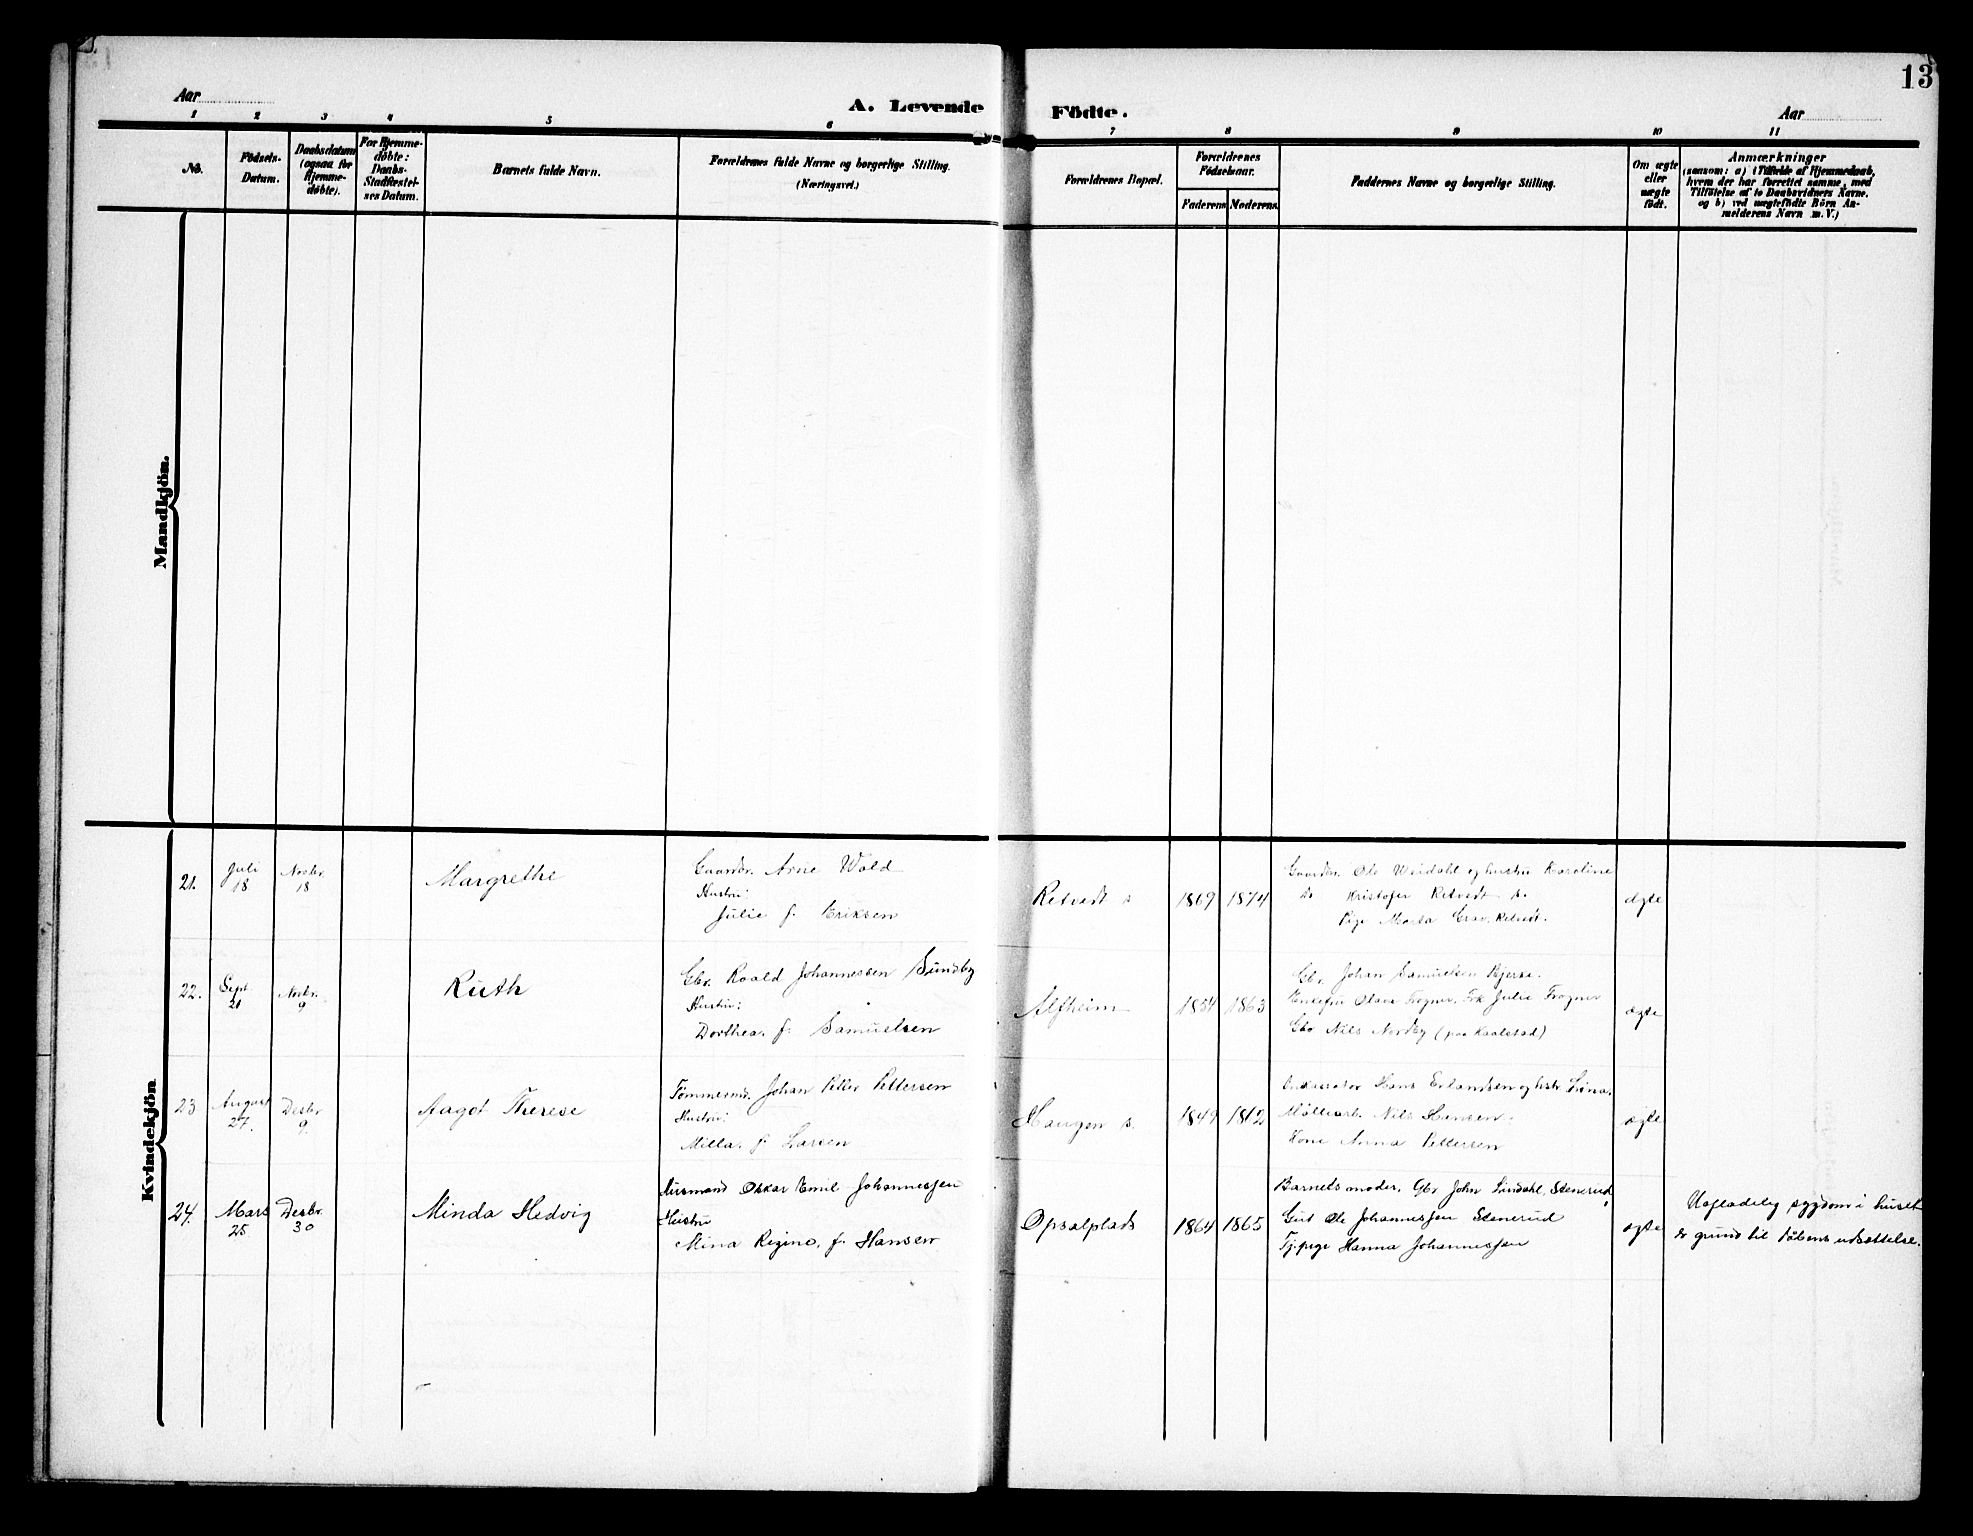 13
Aar
A. Levende
Födte.
Aar
1 2 3 4 5 6 7 8 9 10 11
No.
Födsels-
Datum.
Daabsdatum
(ogsaa for
Hjemme-
döbte).
For Hjemme-
döbte:
Daabs-
Stadfæstel-
ses Datum.
Barnets fulde Navn.
Forældrenes fulde Navne og borgerlige Stilling.
(Næringsvei.)
Forældrenes Bopæl.
Forældrenes
Födselsaar.
Faderens
Moderens
Faddernes Navne og borgerlige Stilling.
Om ægte
eller
uægte
födt.
Anmærkninger
(saasom: a) i Tilfælde af Hjemmedaab,
hvem der har forrettet samme, med
Tilföielse af to Daabsvidners Navne.
og b) ved uægtefödte Börn An-
melderens Navn m. V.)
Mandkjön.
Kvindekjön.
21.
Juli
18
Novbr.
18
Margrethe
Gaardbr. Arne Wold
Hustru:
Julie f. Eriksen
Retvedt s
1869
1874
Gaardbr. Ole Weidahl og hustru Karoline
Do Kristofer Retvedt s.
Pige Marta Grav, Retvedt.
ægte
22.
Sept
21
Novbr.
9
Ruth
Gbr. Roald Johannessen Sundby
Hustru:
Dorthea. f. Samuelsen
Alfheim
1854
1863
Gbr. Johan Samuelsen Bjerke.
Enkefru Olava Frogner, Frk Julie Frogner
Gbr Nils Nordby (paa Kaalstad)
ægte
23
August
27.
Desbr
9
Aagot Therese
Tömmerm. Johan Petter Pettersen
Hustru:
Milla. f. Larsen
Haugen s.
1849
1862
Hans Erlandsen og hstr Lina.
Möllearb. Nils Hansen.
Kone Anna Pettersen
ægte
24.
Mars
25
Desbr
30
Minda Hedvig
Husmand Oskar Emil Johannessen
Hustru
Mina Regine, f. Hansen
Opsalplads
1864
1865
Barnets moder, Gbr John Lindahl, Stenerud,
Gut Ole Johannessen Stenerud
Tj.pige Hanna Johannessen
ægte
Uafladelig sygdom i huset
er grund til dåbens udsættelse.